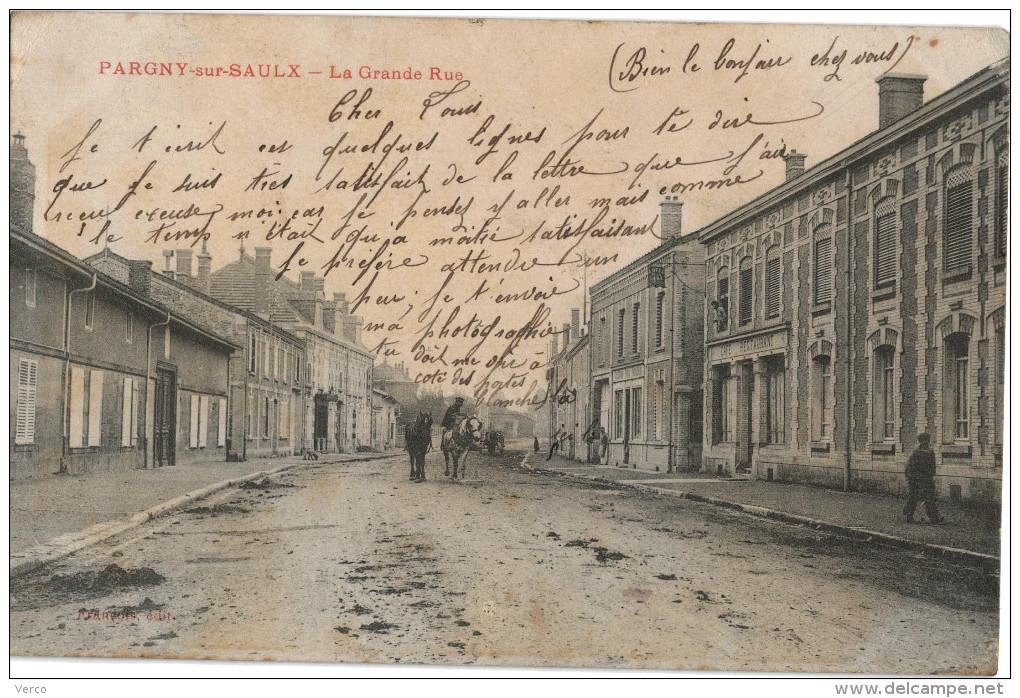 PARGNY-sur-SAULX — La Grande Rue
(Bien le bonjour chez vous)
Cher Louis
Je t'écrit ces quelques lignes pour te dire
que je suis très satisfait de la lettre que j'ai
reçu excuse moi car je pensez y aller mais comme
le temp n'était qu'a moitié satisfaisant
je préfère attendre un
peu; je t'envoie
ma photographie
tu doit me voir à
coté des portes
blanches
CAFÉ RESTAURANT
François, édit.
Verco
© delcampe.net